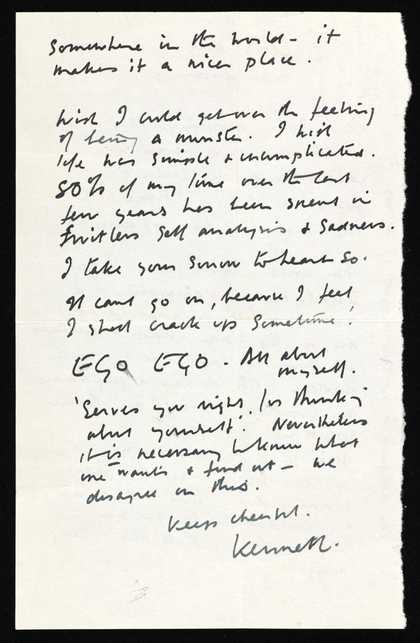 Somewhere in the world – it
makes it a nicer place.
Wish I could get over the feeling
of being a monster. I wish
life was simple & uncomplicated.
80% of my time over the last
few years has been spent in
fruitless self analysis & sadness.
I take your sorrow to heart so.
It cant go on, because I feel
I shall crack up sometime!
EGO EGO. All about
myself.
'Serves you right, for thinking
about yourself'. Nevertheless
it is necessary to know what
one wants & find out – we
disagree on this.
Keep cheerful.
Kenneth.